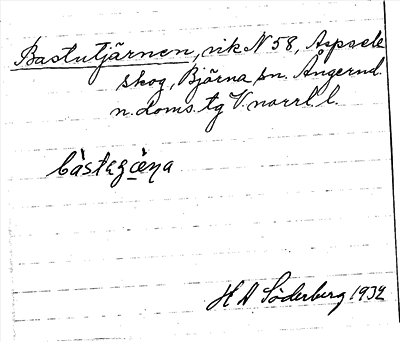 Bastutjärnen, vik N 58, Aspsele
skog, Björna sn. Ångerml.
n. doms. tg V. norrl. l.
H A Söderberg 1932